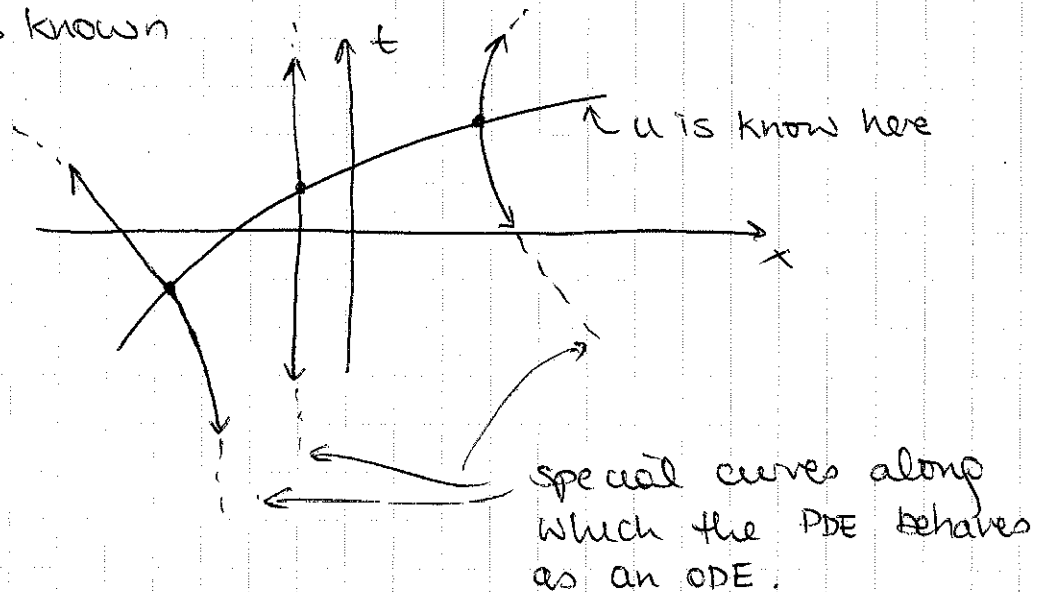 known
t
u is know here
x
special curves along
which the PDE behaves
as an ODE.